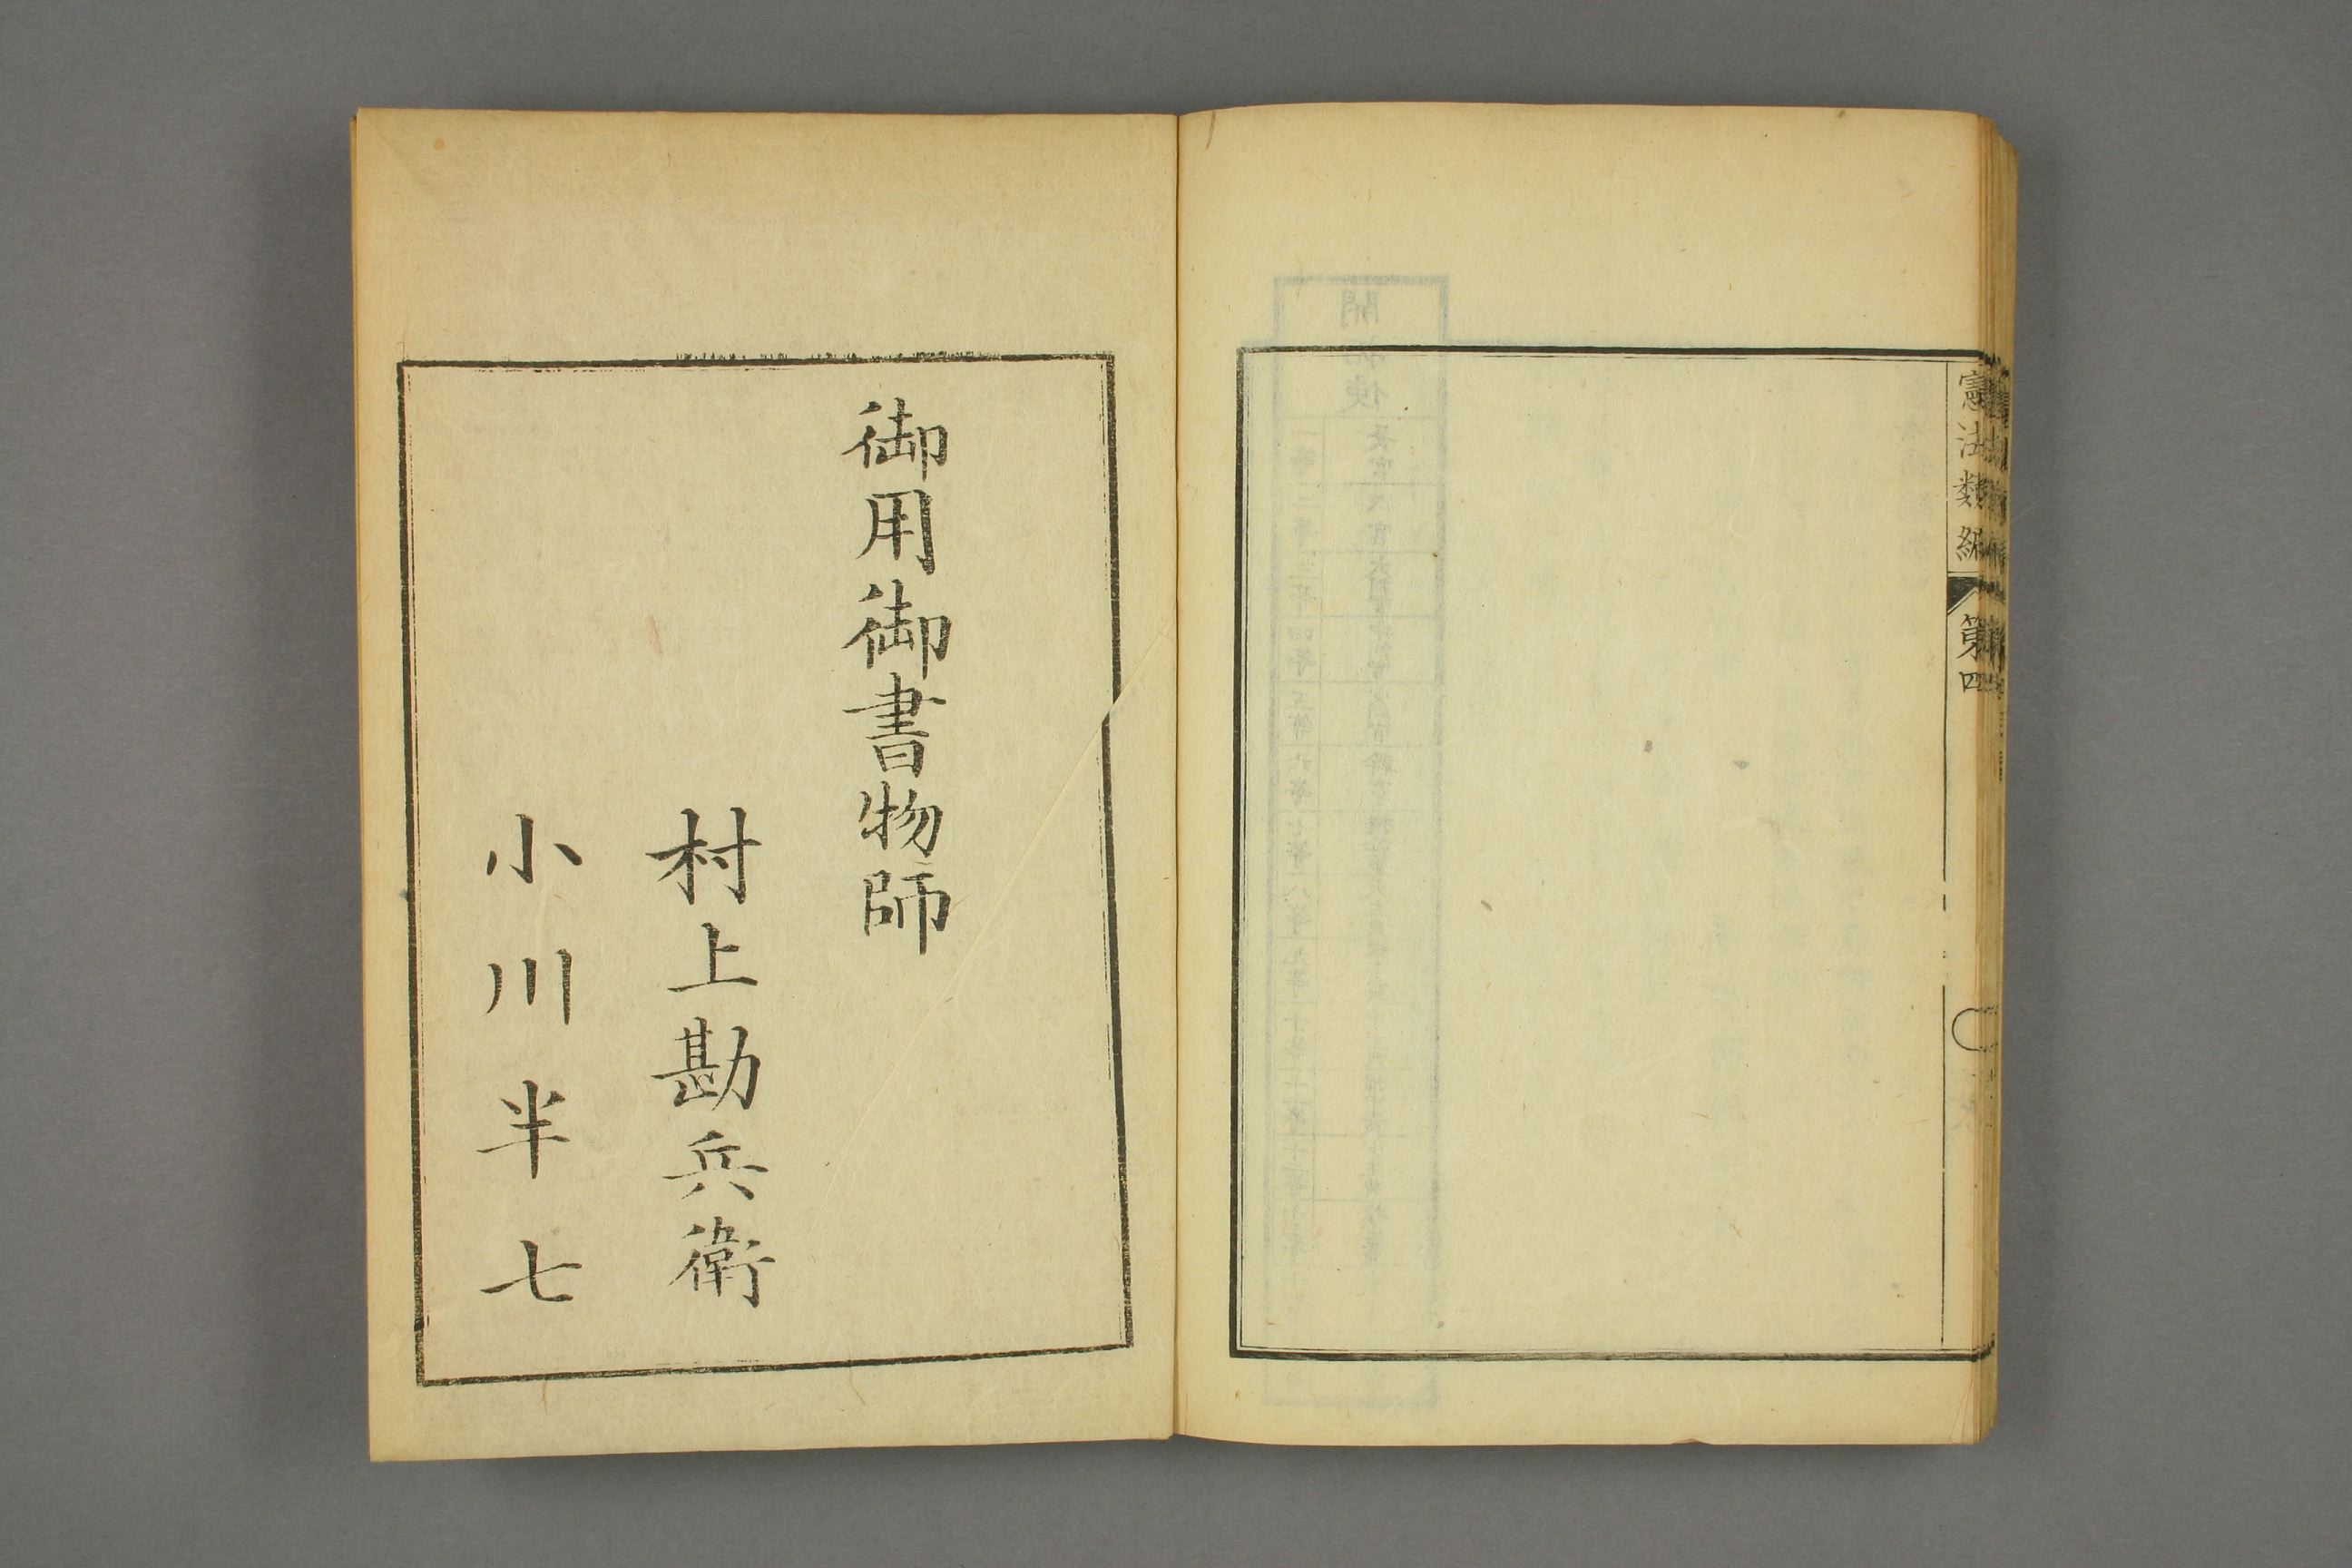 憲法類編
第四
御用御書物師
村上勘兵衛
小川半七